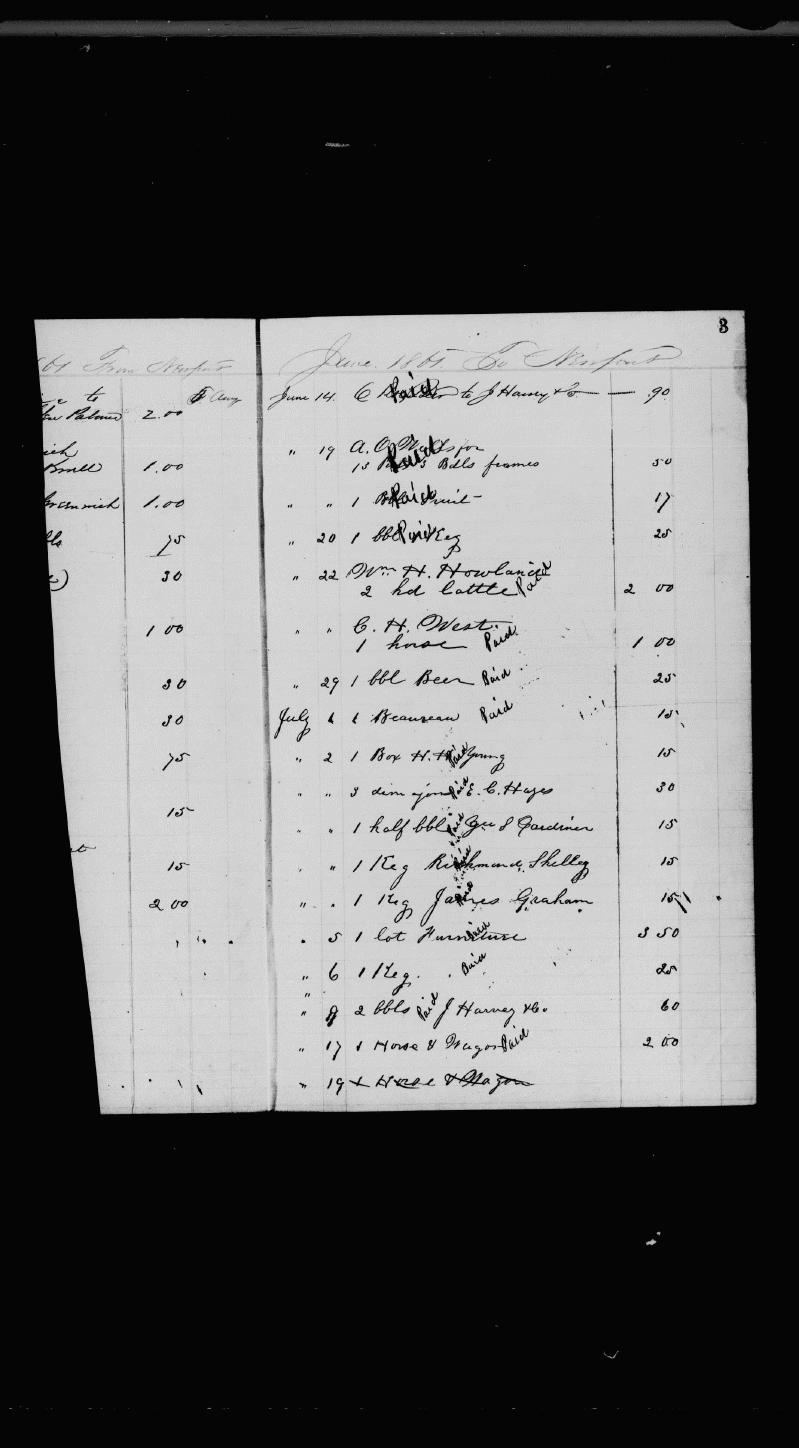 3
From Newport
to
Palmer 2.00
1.00
Greenwich 1.00
75
30
1 00
30
30
75
15
15
2 00
June. 186 To Newport
June 14. C Paid to J Harvey & Co 90
" 19 A. O. for
15 Paid Bills frames 50
" " 1 Paid 17
" 20 1 bbl Paid Keg 25
" 22 Wm H. Howland
2 hd Cattle Paid 2 00
" " C. H. West.
1 horse Paid 1 00
" 29 1 bbl Beer Paid 25
July 1 1 Beaureau Paid 15
" 2 1 Box H. H. Young Paid 15
" " 3 dimajons Paid E. C. Hayes 30
" " 1 half bbl Paid Geo S Gardiner 15
" " 1 Keg Richmond Shelley Paid 15
" " 1 Keg James Graham Paid 15
" 5 1 lot Furniture Paid 3 50
" 6 1 Keg. Paid 25
"
" 9 2 bbls Paid J Harvey & Co. 60
" 17 1 Horse & Wagon Paid 2 00
" 19 1 Horse & Wagon